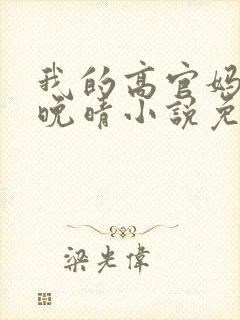 我的高官妈
晚晴小说免
梁光偉